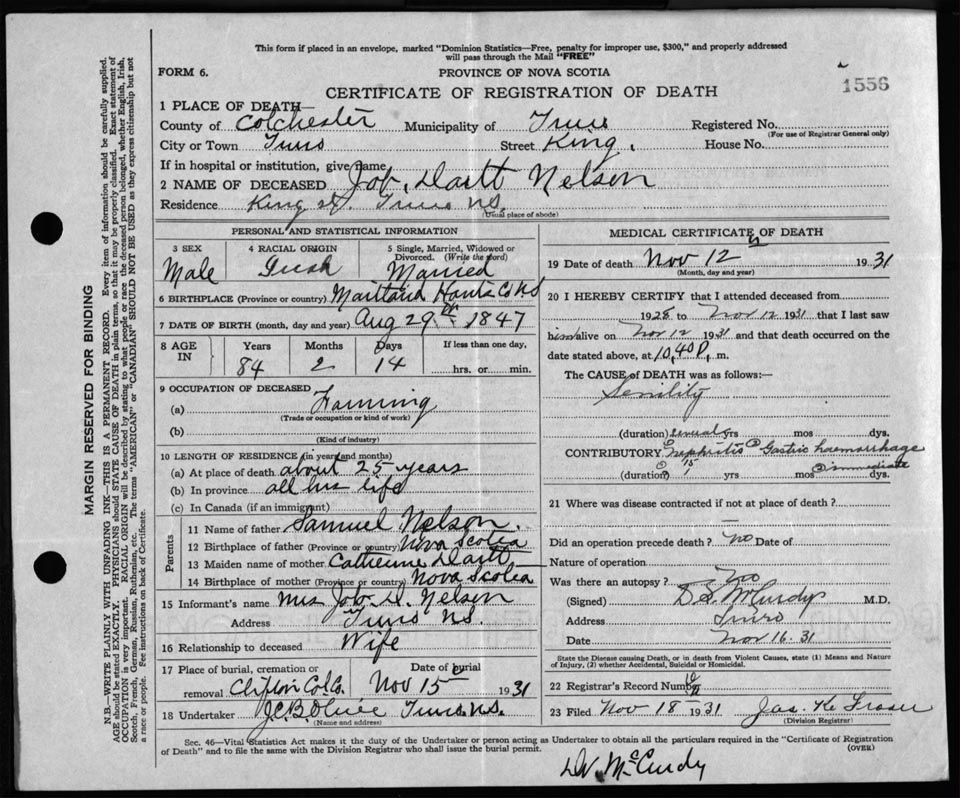 This form if placed in an envelope, marked "Dominion Statistics—Free, penalty for improper use, $300," and properly addressed
will pass through the Mail "FREE"
FORM 6.
PROVINCE OF NOVA SCOTIA
1556
CERTIFICATE OF REGISTRATION OF DEATH
1 PLACE OF DEATH—
County of Colchester Municipality of Truro Registered No.
(For use of Registrar General only)
City or Town Truro Street King. House No.
If in hospital or institution, give name
2 NAME OF DECEASED Job, Dartt Nelson
Residence King st. Truro N.S.
(Usual place of abode)
PERSONAL AND STATISTICAL INFORMATION
3 SEX 4 RACIAL ORIGIN 5 Single, Married, Widowed or Divorced. (Write the word)
Male Irish Married
6 BIRTHPLACE (Province or country) Maitland Hants Co N.S
7 DATE OF BIRTH (month, day and year) Aug 29th 1847
8 AGE IN Years Months Days If less than one day,
84 2 14 hrs. or min.
9 OCCUPATION OF DECEASED
(a) Farming
(Trade or occupation or kind of work)
(b)
(Kind of industry)
10 LENGTH OF RESIDENCE (in years and months)
(a) At place of death about 25 years
(b) In province all his life
(c) In Canada (if an immigrant)
Parents
11 Name of father Samuel Nelson.
12 Birthplace of father (Province or country) Nova Scotia
13 Maiden name of mother Catherine Dartt
14 Birthplace of mother (Province or country) Nova Scotia
15 Informant's name Mrs Job D. Nelson
Address Truro N.S.
16 Relationship to deceased Wife
17 Place of burial, cremation or Date of burial
removal Clifton Col Co. Nov 15th 1931
18 Undertaker J.C.B. Olive Truro N.S.
(Name and address)
MEDICAL CERTIFICATE OF DEATH
19 Date of death Nov 12th 1931
(Month, day and year)
20 I HEREBY CERTIFY that I attended deceased from
1928 to Nov 12 1931 that I last saw
him alive on Nov 12 1931 and that death occurred on the
date stated above, at 10,40 P, m.
The CAUSE of DEATH was as follows:—
Senility
(duration) several yrs mos dys.
CONTRIBUTORY (1) Nephritis (2) Gastric haemorrhage
(duration) (1) 15 mos (2) immediate dys.
21 Where was disease contracted if not at place of death?
—
Did an operation precede death? no Date of
Nature of operation —
Was there an autopsy? no
(Signed) D.S. McCurdy M.D.
Address Truro
Date Nov 16. 31
State the Disease causing Death, or in death from Violent Causes, state (1) Means and Nature
of Injury, (2) whether Accidental, Suicidal or Homicidal.
22 Registrar's Record Number
23 Filed Nov 18 1931 Jas. K. Fraser
(Division Registrar)
Sec. 46—Vital Statistics Act makes it the duty of the Undertaker or person acting as Undertaker to obtain all the particulars required in the "Certificate of Registration
of Death" and to file the same with the Division Registrar who shall issue the burial permit.
(OVER)
McCurdy
MARGIN RESERVED FOR BINDING
N.B.—WRITE PLAINLY WITH UNFADING INK—THIS IS A PERMANENT RECORD. Every item of information should be carefully supplied.
AGE should be stated EXACTLY. PHYSICIANS should STATE CAUSE OF DEATH in plain terms, so that it may be properly classified. Exact statement of
OCCUPATION is very important. RACIAL ORIGIN will be described by stating to what people or race the deceased person belonged, whether English, Irish,
Scotch, French, German, Russian, Ruthenian, etc. The terms "AMERICAN" or "CANADIAN" SHOULD NOT BE USED as they express citizenship but not
a race or people. See instructions on back of Certificate.